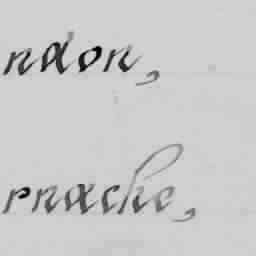 ndon,
rnache,